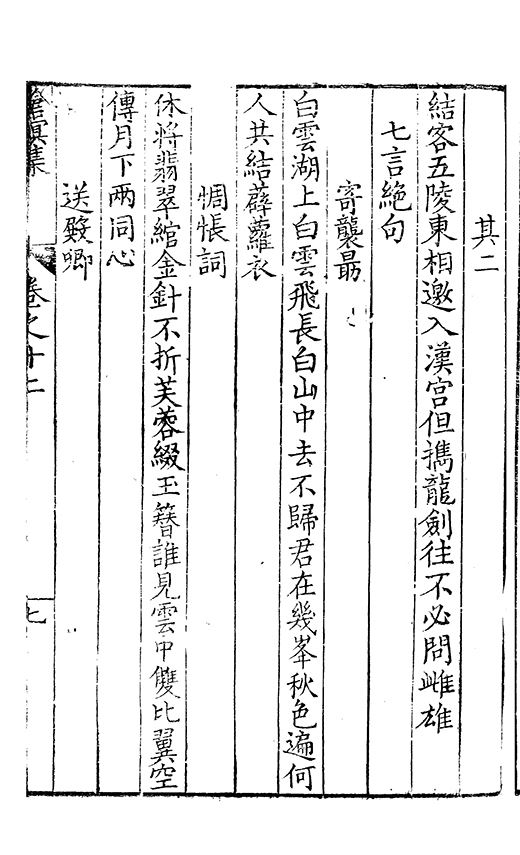 其二
結客五陵東相邀入漢宮但攜龍劍往不必問雌雄
七言絕句
寄襲勗
白雲湖上白雲飛長白山中去不歸君在幾峯秋色遍何
人共結薜蘿衣
惆悵詞
休將翡翠綰金針不折芙蓉綴玉簪誰見雲中雙比翼空
傳月下兩同心
送殿卿
滄溟集
卷之十二
七